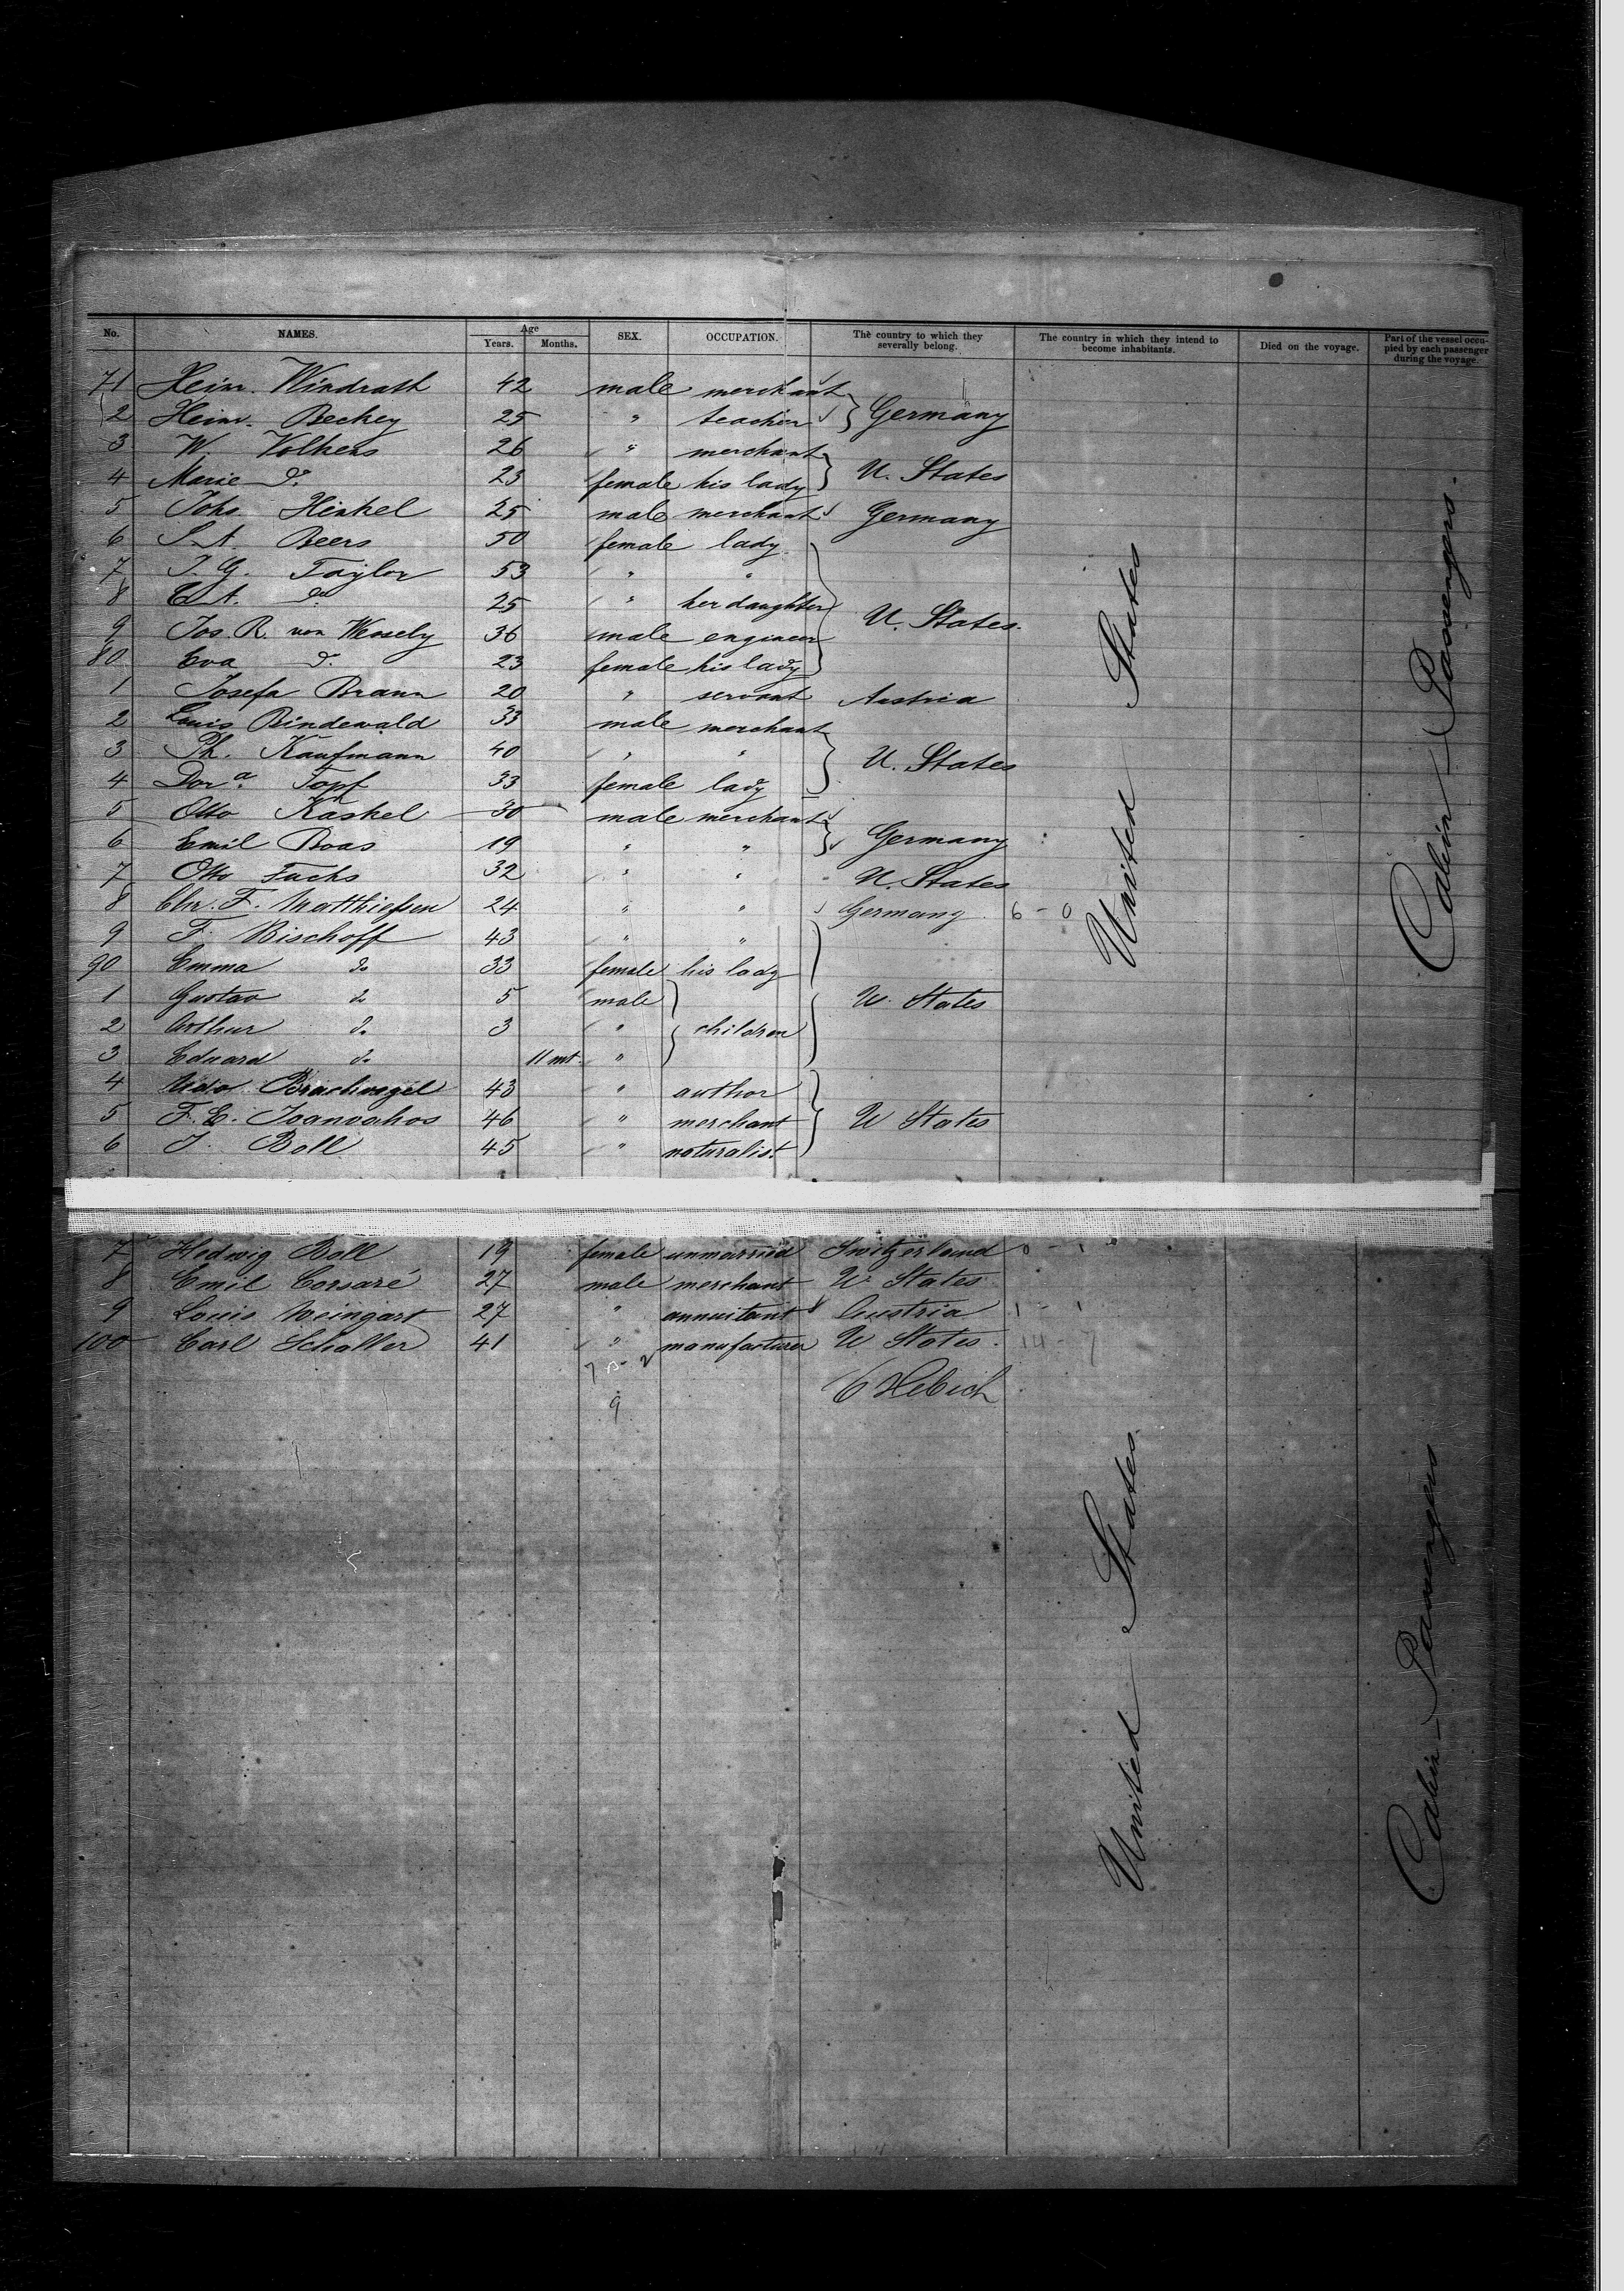 No. NAMES. Age Years. Months. SEX. OCCUPATION. The country to which they severally belong. The country in which they intend to become inhabitants. Died on the voyage. Part of the vessel occupied by each passenger during the voyage.
71 Heinr. Windrath 42 male merchant
2 Heinr. Beckey 25 " teacher } Germany
3 W. Volkens 26 " merchant
4 Marie do. 23 female his lady } U. States
5 Johs. Hinkel 25 male merchant Germany
6 S. A. Beers 50 female lady
7 J. G. Taylor 53 " "
8 C. A. do. 25 " her daughter
9 Jos. R. von Wessely 36 male engineer } U. States.
80 Eva do. 23 female his lady
1 Josefa Braun 20 " servant Austria
2 Louis Bindewald 33 male merchant
3 Ph. Kaufmann 40 " " } U. States
4 Dora. Topf 33 female lady
5 Otto Kaskel 30 male merchant
6 Emil Boas 19 " " } Germany
7 Otto Fuchs 32 " " U. States
8 Chr. F. Matthiessen 24 " " Germany 6 - 0
9 F. Bischoff 43 " "
90 Emma do 33 female his lady
1 Gustav do 5 male } U. States
2 Arthur do. 3 " } children
3 Eduard do 11 mt. "
4 Udo Brachvogel 43 " author
5 F. C. 46 " merchant } U States
6 J. Boll 45 " naturalist
7 Hedwig Boll 19 female unmarried Switzerland 0 - 1
8 Emil Corsaré 27 male merchant U. States
9 Louis Weingart 27 " annuitant Austria 1 - 1
100 Carl Schaller 41 " manufacturer U States. 14 - 7
9
C Hebich
United States
Cabin Passengers.
United States.
Cabin Passengers